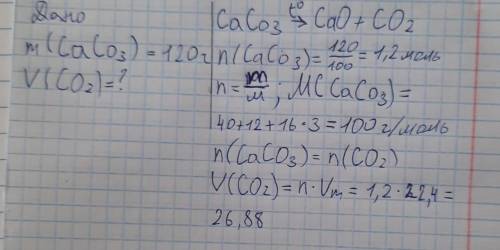 Дано
m(CaCO3) = 120г
V(CO2)=?
CaCO3 t° → CaO + CO2
n(CaCO3) = 120/100 = 1,2 моль
n = m/M ; M(CaCO3) =
40+12+16·3=100г/моль
n(CaCO3) = n(CO2)
V(CO2) = n·Vm = 1,2·22,4 =
26,88